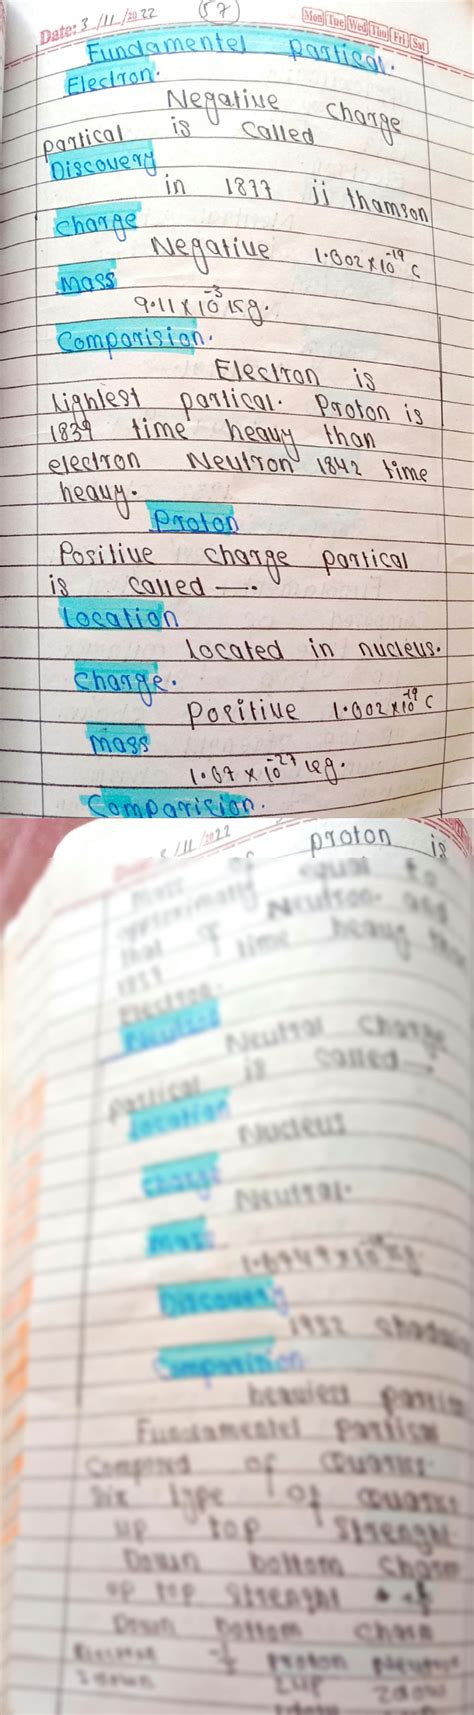 Date: 3/11/2022 (57) Mon Tue Wed Thu Fri Sat
Fundamentel partical.
Electron.
Negative charge
partical is called
Discovery
in 1877 jj thamson
Charge
Negative 1.602×10⁻¹⁹ C
Mass
9.11 × 10⁻³ kg.
Comparision.
Electron is
Lightest partical. Proton is
1839 time heavy than
electron Neutron 1842 time
heavy.
Proton
Positive charge partical
is called —.
Location
Located in nucleus.
Charge.
Poritive 1.602×10⁻¹⁹ C
Mass
1.67 × 10⁻²⁷ kg.
Comparision.
3/11/2022
proton is
equal to
Neutron. and
that of time heavy than
Electron.
Neutral charge
partical is called —
Location
Nucleus
Charge
Neutral.
Mass
Discovery
1932
Comparision
heaviest
Fundamentel partical
of Quarks
six type of Quarks
up top strenght
Down bottom charm
up top strenght
Down bottom charm
proton
2up 2dow